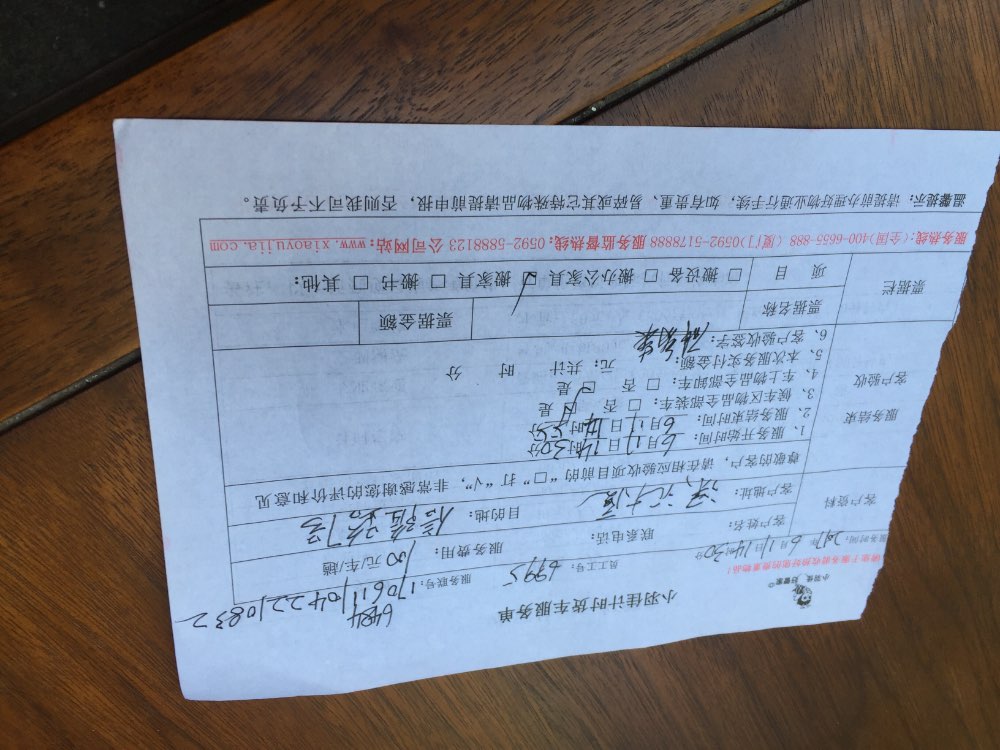 小羽佳 好管家
小羽佳计时货车服务单
请您于服务前检验好您的贵重物品!
6484
服务时间:2017年6月11日14时30分 员工工号:6995 服务联号:1706111042210832
客户资料 客户姓名: 联系电话: 服务费用:100元/车/趟
客户地址: 目的地:
尊敬的客户,请在相应验收项目前的“□”打“√”,非常感谢您的评价和意见
服务结束
客户验收
1、服务开始时间:6月11日14时30分
2、服务结束时间:6月11日14时55分
3、候车区物品全部装车:□ 否 ☑ 是
4、车上物品全部卸车:□ 否 ☑ 是
5、本次服务实付金额: 元;共计 时 分
6、客户验收签字:
票据栏 票据名称 票据金额
项 目 □ 搬设备 □ 搬办公家具 ☑ 搬家具 □ 搬书 □ 其他:
服务热线:(全国)400-6655-888 (厦门)0592-5178888 服务监督热线:0592-5888123 公司网站:www.xiaoyujia.com
温馨提示: 请提前办理好物业通行手续,如有贵重、易碎或其它特殊物品请提前申报,否则我司不予负责。